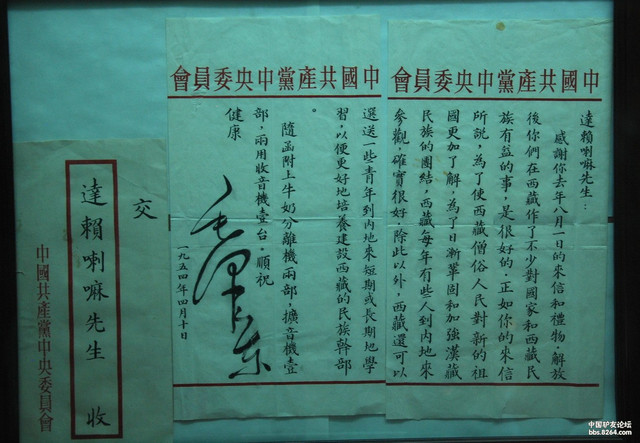 中國共產黨中央委員會
達賴喇嘛先生：
感謝你去年八月一日的來信和禮物。解放
後你們在西藏作了不少對國家和西藏民
族有益的事，是很好的。正如你的來信
所說，為了使西藏僧俗人民對新的祖
國更加了解，為了日漸鞏固和加強漢藏
民族的團結，西藏每年有些人到內地來
參觀，確實很好。除此以外，西藏還可以
中國共產黨中央委員會
選送一些青年到內地來短期或長期地學
習，以便更好地培養建設西藏的民族幹部
。
隨函附上牛奶分離機兩部，擴音機壹
部，兩用收音機壹台。順祝
健康
毛澤東
一九五四年四月十日
交
達賴喇嘛先生 收
中國共產黨中央委員會
中国驴友论坛
bbs.8264.com